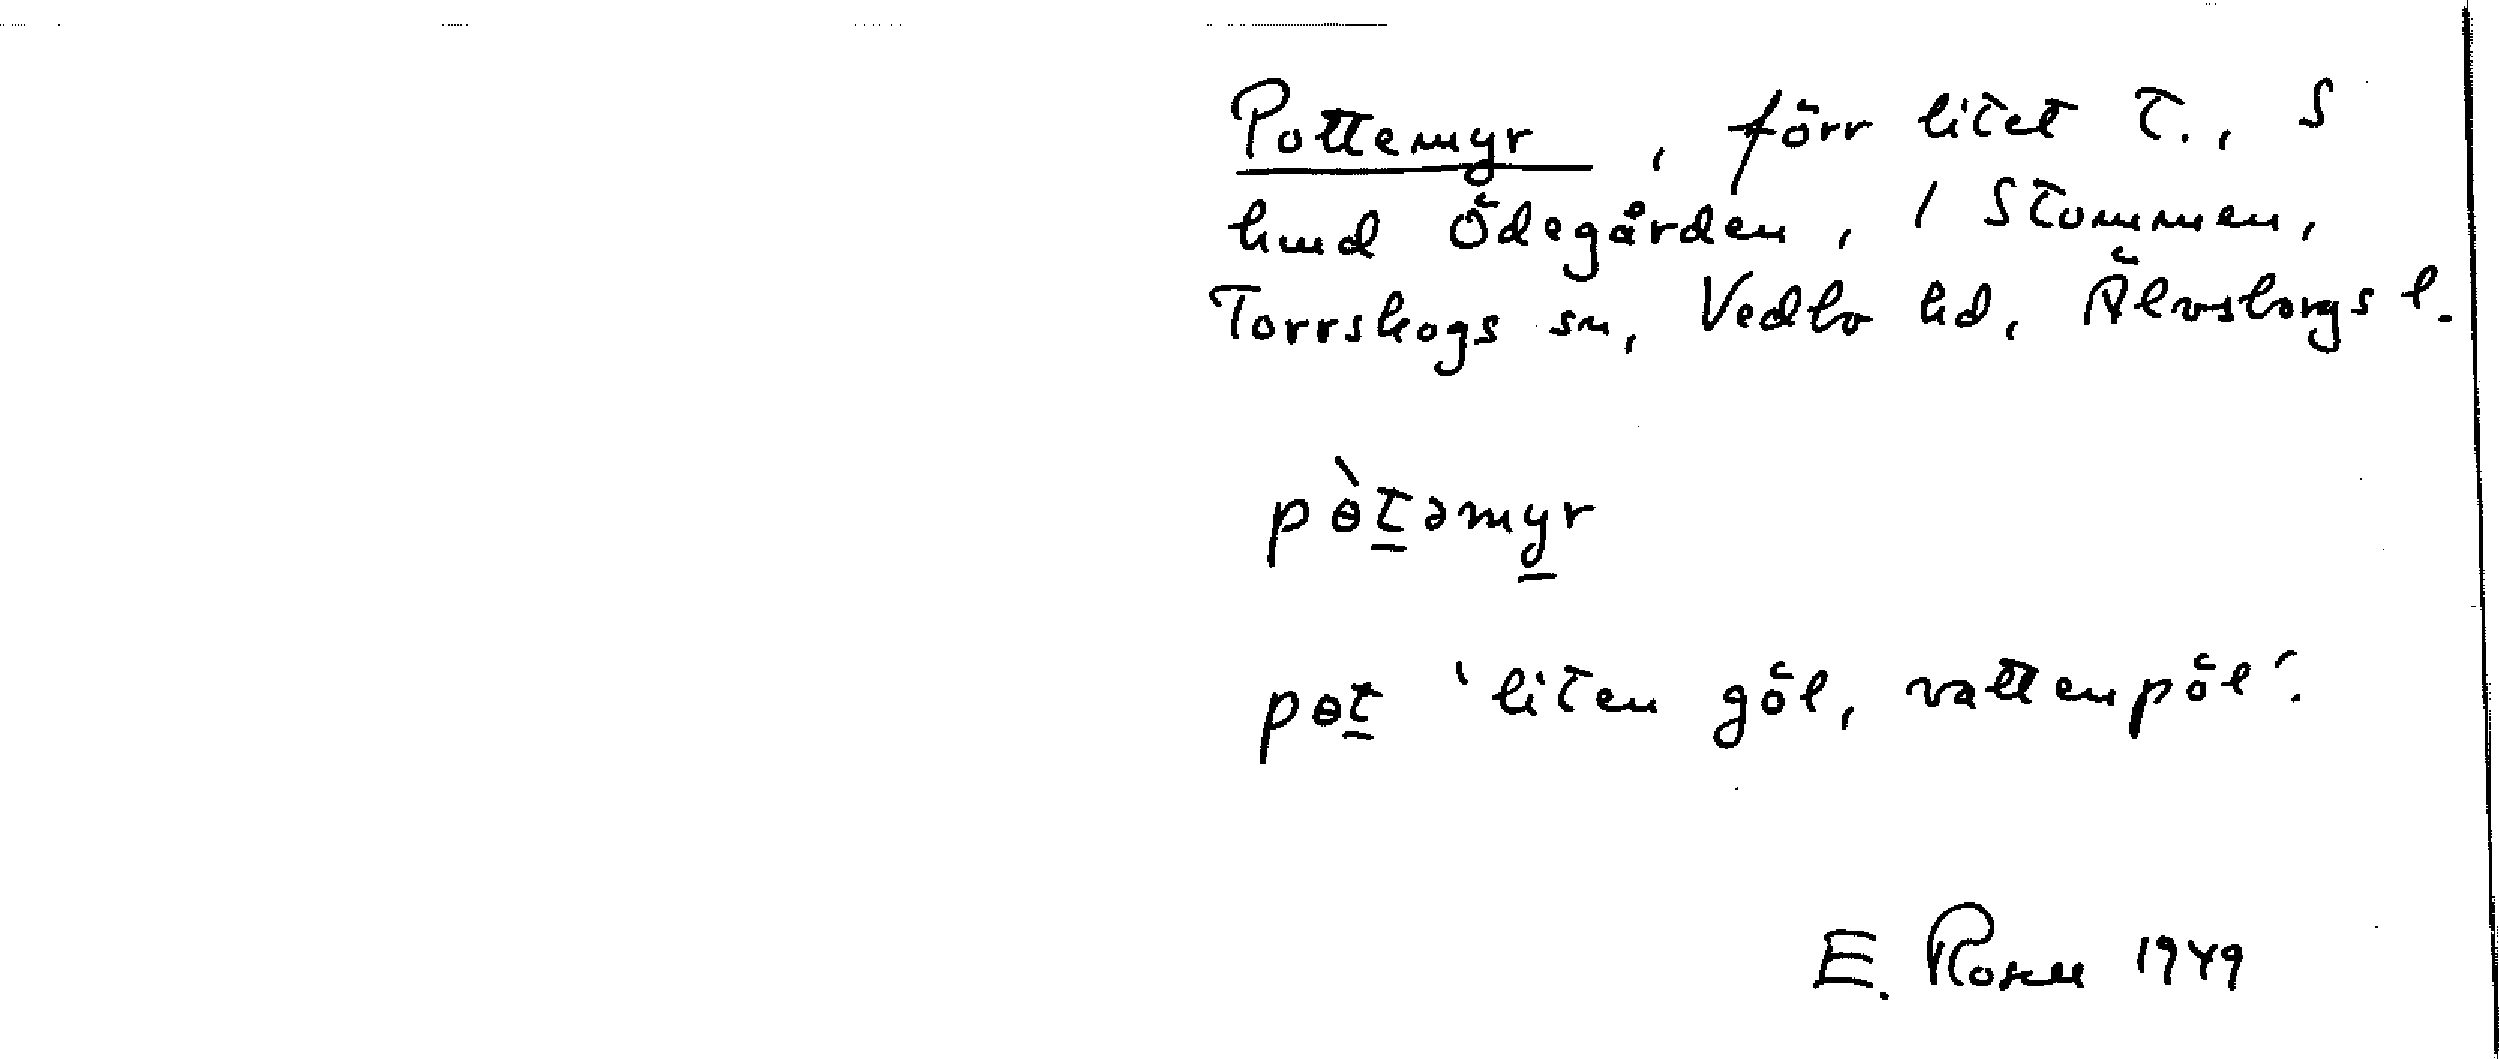 Pottemyr, förr litet t., S
hmd Ödegården, 1 Stommen,
Torrskogs sn, Vedbo hd, Älvsborgs l.
pɵ̀t̲əmy̲r
pɵt̲ 'liten göl, vattenpöl'.
E. Rosell 1949